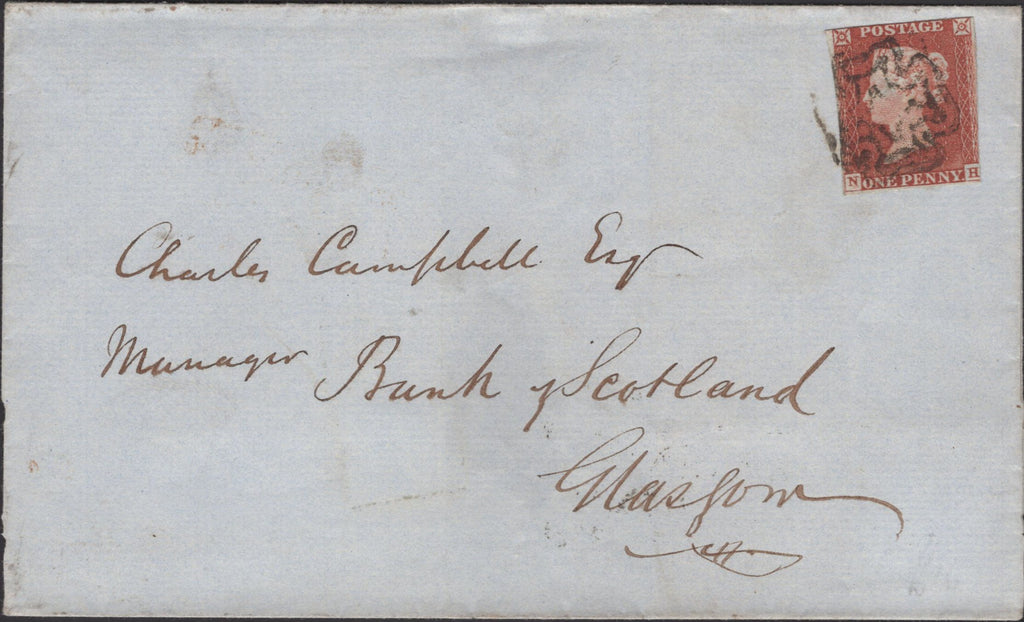 POSTAGE
N ONE PENNY H
Charles Campbell Esq
Manager Bank of Scotland
Glasgow